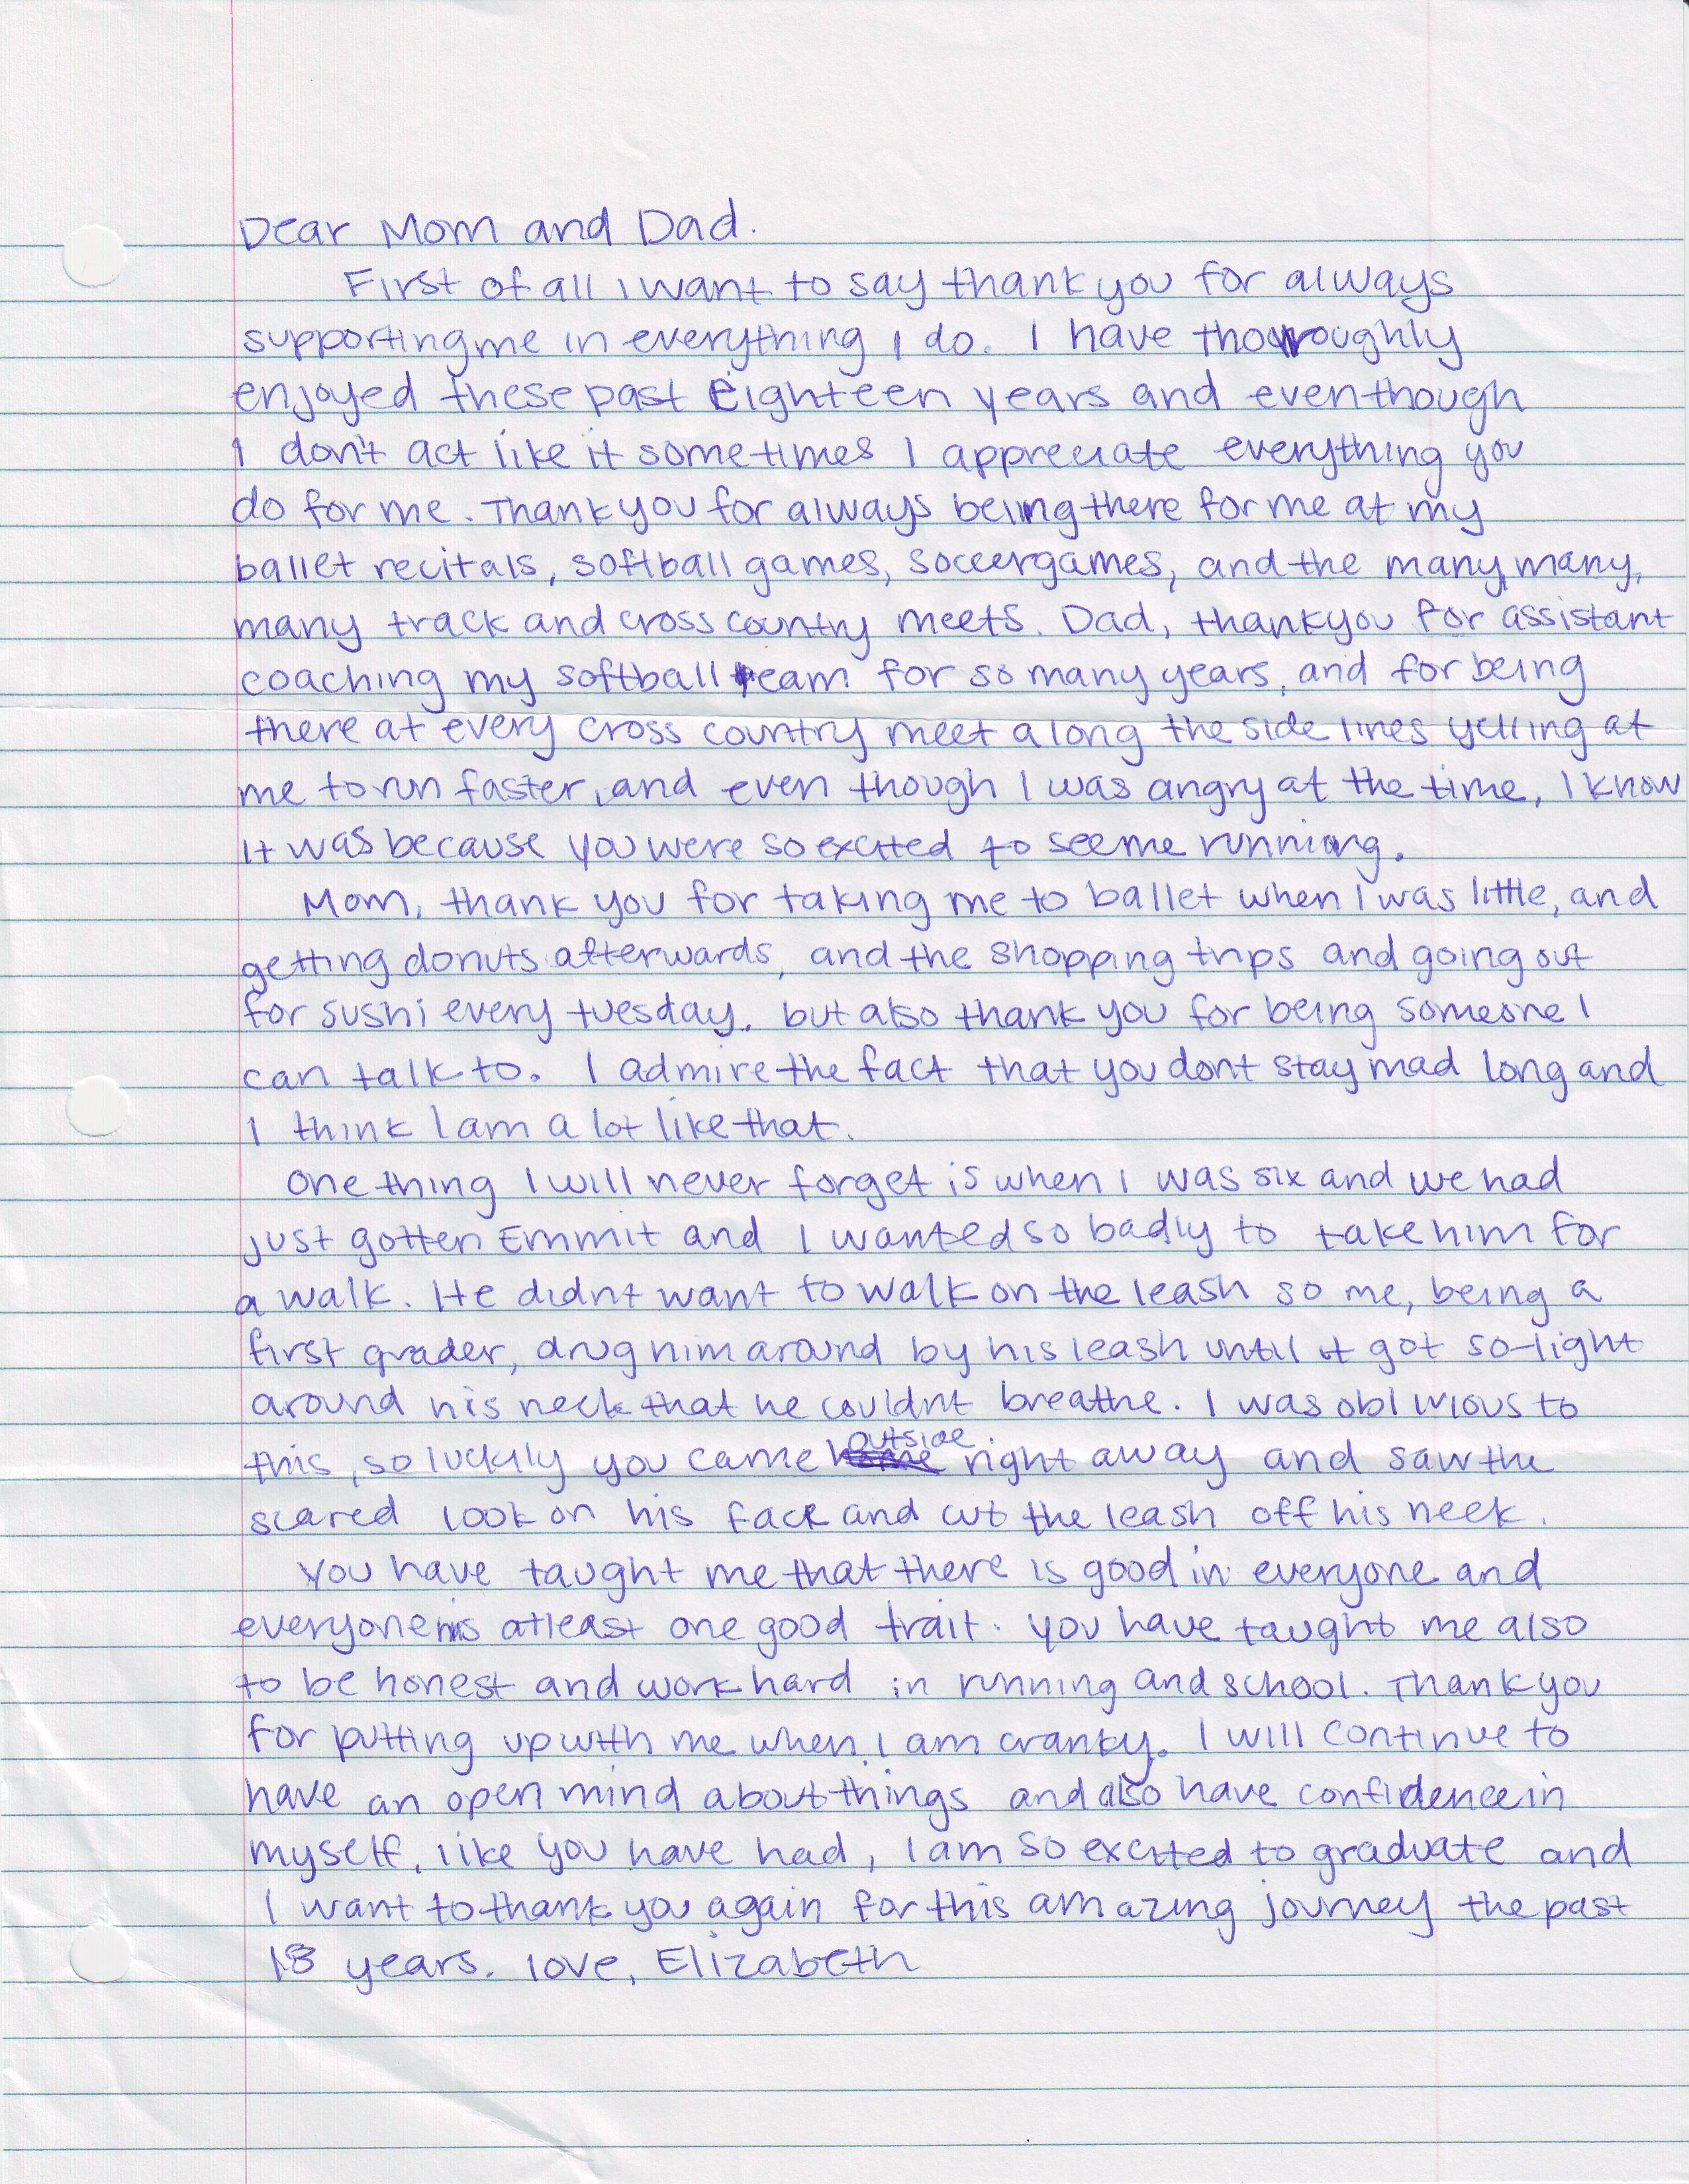 Dear Mom and Dad.
First of all I want to say thank you for always
supporting me in everything I do. I have thoroughly
enjoyed these past eighteen years and eventhough
I don't act like it sometimes I appreciate everything you
do for me. Thank you for always being there for me at my
ballet recitals, softball games, soccer games, and the many, many,
many track and cross country meets. Dad, thankyou for assistant
coaching my softball team for so many years, and for being
there at every cross country meet along the side lines yelling at
me to run faster, and even though I was angry at the time, I know
it was because you were so excited to see me running.
Mom, thank you for taking me to ballet when I was little, and
getting donuts afterwards, and the shopping trips and going out
for sushi every tuesday, but also thank you for being someone I
can talk to. I admire the fact that you dont stay mad long and
I think I am a lot like that.
One thing I will never forget is when I was six and we had
just gotten Emmit and I wanted so badly to take him for
a walk. He didnt want to walk on the leash so me, being a
first grader, drug him around by his leash until it got so tight
around his neck that he couldnt breathe. I was oblivious to
this, so luckily you came outside right away and saw the
scared look on his face and cut the leash off his neck.
You have taught me that there is good in everyone and
everyone has atleast one good trait. You have taught me also
to be honest and work hard in running and school. Thank you
for putting up with me when I am cranky. I will continue to
have an open mind about things and also have confidence in
myself, like you have had, I am so excited to graduate and
I want to thank you again for this amazing journey the past
18 years. love, Elizabeth